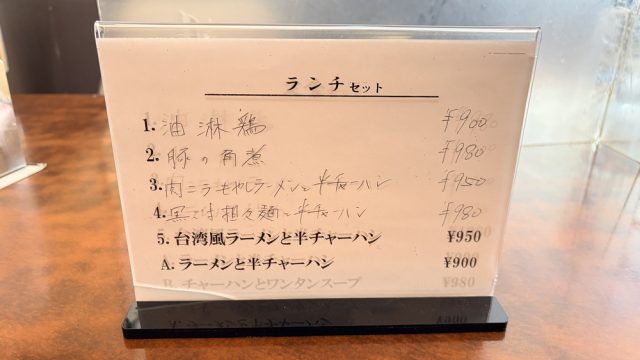 ランチセット
1. 油淋鶏 ¥900
2. 豚の角煮 ¥980
3. 肉ニラもやしラーメンと半チャーハン ¥950
4. 黒ごま担々麺と半チャーハン ¥980
5. 台湾風ラーメンと半チャーハン ¥950
A. ラーメンと半チャーハン ¥900
B. チャーハンとワンタンスープ ¥980